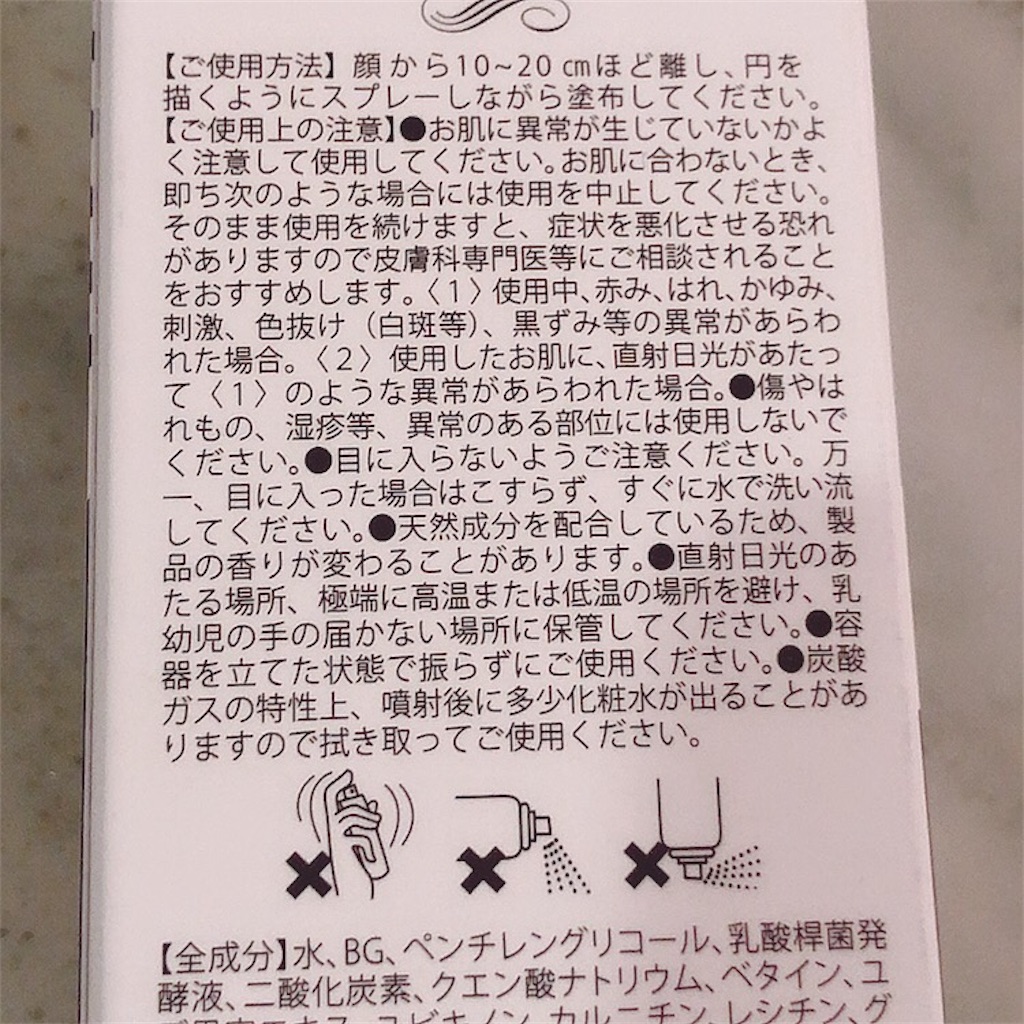 【ご使用方法】顔から10~20㎝ほど離し、円を
描くようにスプレーしながら塗布してください。
【ご使用上の注意】●お肌に異常が生じていないかよ
く注意して使用してください。お肌に合わないとき、
即ち次のような場合には使用を中止してください。
そのまま使用を続けますと、症状を悪化させる恐れ
がありますので皮膚科専門医等にご相談されること
をおすすめします。〈1〉使用中、赤み、はれ、かゆみ、
刺激、色抜け（白斑等）、黒ずみ等の異常があらわ
れた場合。〈2〉使用したお肌に、直射日光があたっ
て〈1〉のような異常があらわれた場合。●傷やは
れもの、湿疹等、異常のある部位には使用しないで
ください。●目に入らないようご注意ください。万
一、目に入った場合はこすらず、すぐに水で洗い流
してください。●天然成分を配合しているため、製
品の香りが変わることがあります。●直射日光のあ
たる場所、極端に高温または低温の場所を避け、乳
幼児の手の届かない場所に保管してください。●容
器を立てた状態で振らずにご使用ください。●炭酸
ガスの特性上、噴射後に多少化粧水が出ることがあ
りますので拭き取ってご使用ください。
【全成分】水、BG、ペンチレングリコール、乳酸桿菌発
酵液、二酸化炭素、クエン酸ナトリウム、ベタイン、ユ
ユビキノン、カルニチン、レシチン、グ